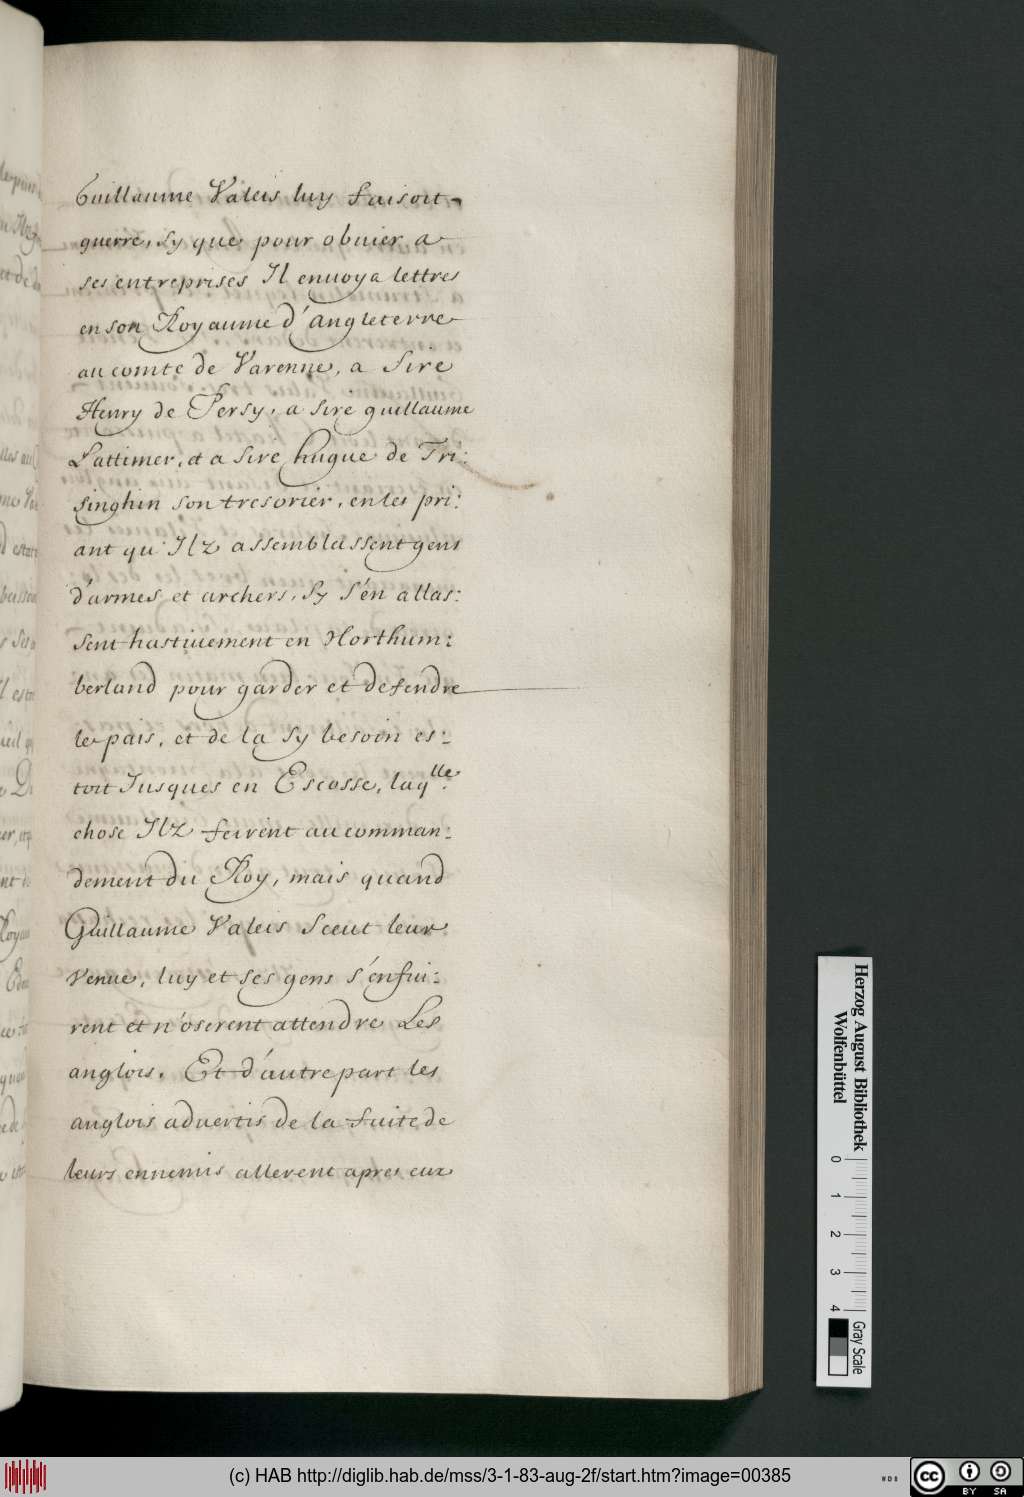 Guillaume Valeis luy faisoit
guerre, sy que pour obuier a
ses entreprises Il enuoya lettres
en son Royaume d'angleterre
au comte de Varenne, a Sire
Henry de Persy, a sire guillaume
Lattimer, et a Sire hugue de Tri:
singhin son tresorier, en les pri:
ant qu'Ilz assemblassent gens
d'armes et archers, Sy s'en allas:
sent hastiuement en Northum:
berland pour garder et defendre
le pais, et de la sy besoin es:
toit Jusques en Escosse, laqlle
chose Ilz feirent au comman:
dement du Roy, mais quand
Guillaume Valeis Sceut leur
venue, luy et ses gens s'enfui:
rent et n'oserent attendre Les
anglois. Et d'autre part les
anglois aduertis de la fuite de
leurs ennemis allerent apres eux
Herzog August Bibliothek
Wolfenbüttel
0 1 2 3 4
Gray Scale
(c) HAB http://diglib.hab.de/mss/3-1-83-aug-2f/start.htm?image=00385
cc BY SA